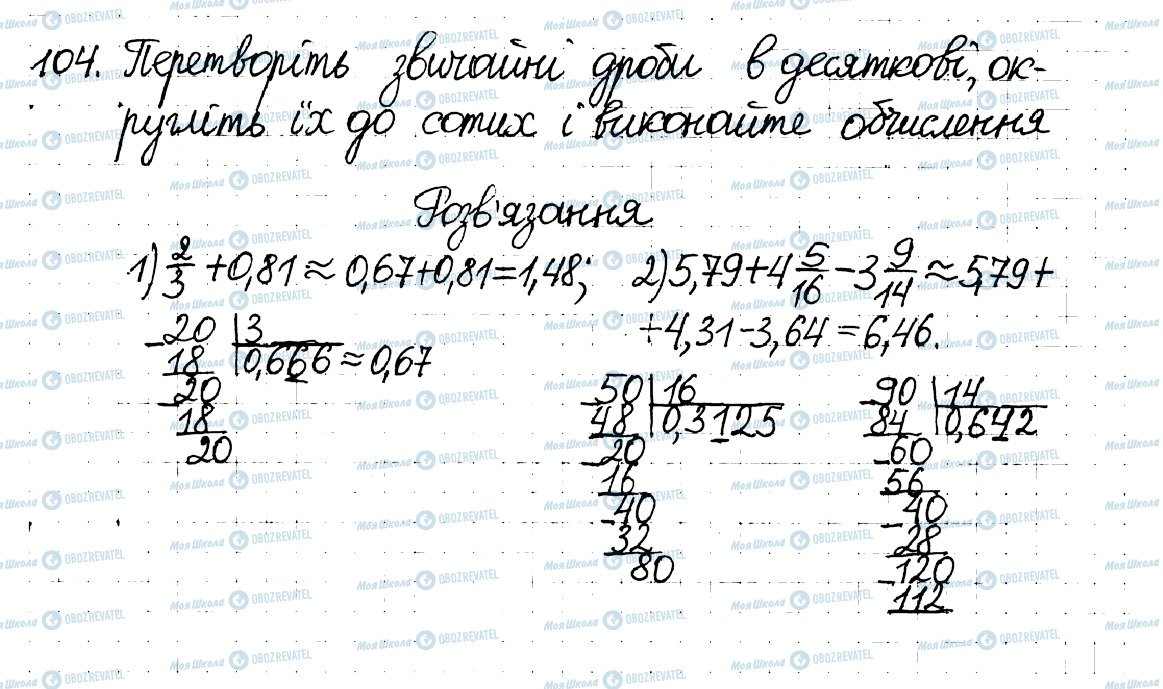 104. Перетворіть звичайні дроби в десяткові, ок-
ругліть їх до сотих і виконайте обчислення
Розв'язання
1) 2/3 + 0,81 ≈ 0,67 + 0,81 = 1,48; 2) 5,79 + 4 5/16 - 3 9/14 ≈ 5,79 +
+ 4,31 - 3,64 = 6,46.
- 20 | 3
18 | 0,666 ≈ 0,67
- 20
18
20
- 50 | 16
48 | 0,3125
- 20
16
- 40
32
80
- 90 | 14
84 | 0,642
- 60
56
- 40
28
- 120
112
Моя Школа OBOZREVATEL